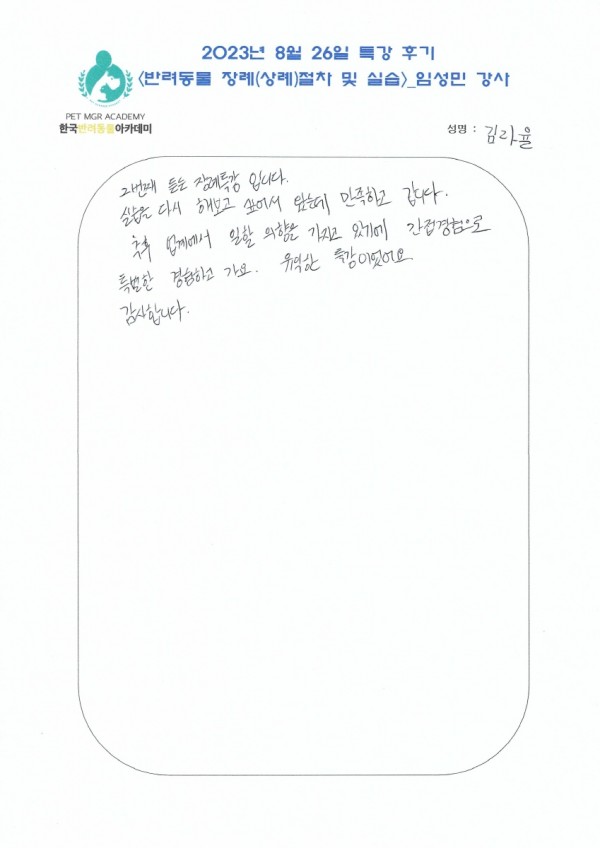 2023년 8월 26일 특강 후기
<반려동물 장례(상례)절차 및 실습>_임성민 강사
PET MGR ACADEMY
한국반려동물아카데미
성명 : 김라율
2번째 듣는 장례특강 입니다.
실습을 다시 해보고 싶어서 왔는데 만족하고 갑니다.
추후 업계에서 일할 의향을 가지고 있기에 간접경험으로
특별한 경험하고 가요. 유익한 특강이었어요.
감사합니다.